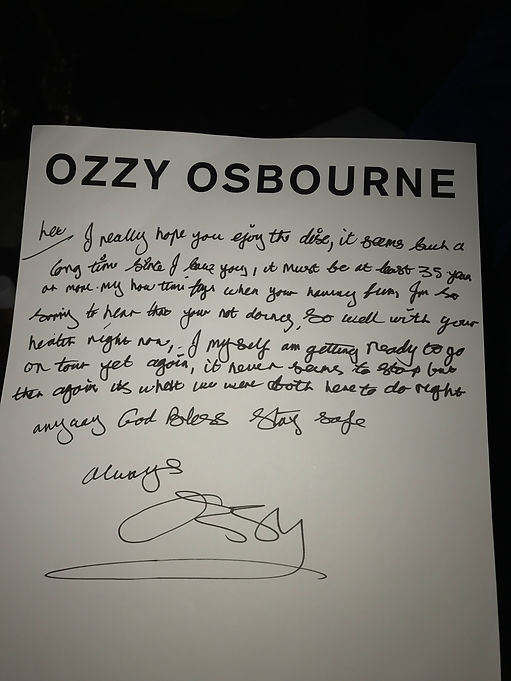 OZZY OSBOURNE
I really hope you ejoy the disc, it seems such a
long time since I, it must be at least 35 year
or more my how time fly's when your having fun, Im so
sorry to hear that your not doing, so well with your
health right now, I my self am getting ready to go
on tour yet again, it never seems to stop but
then again its what we were both here to do right
anyway God Bless Stay safe
always
Ozzy